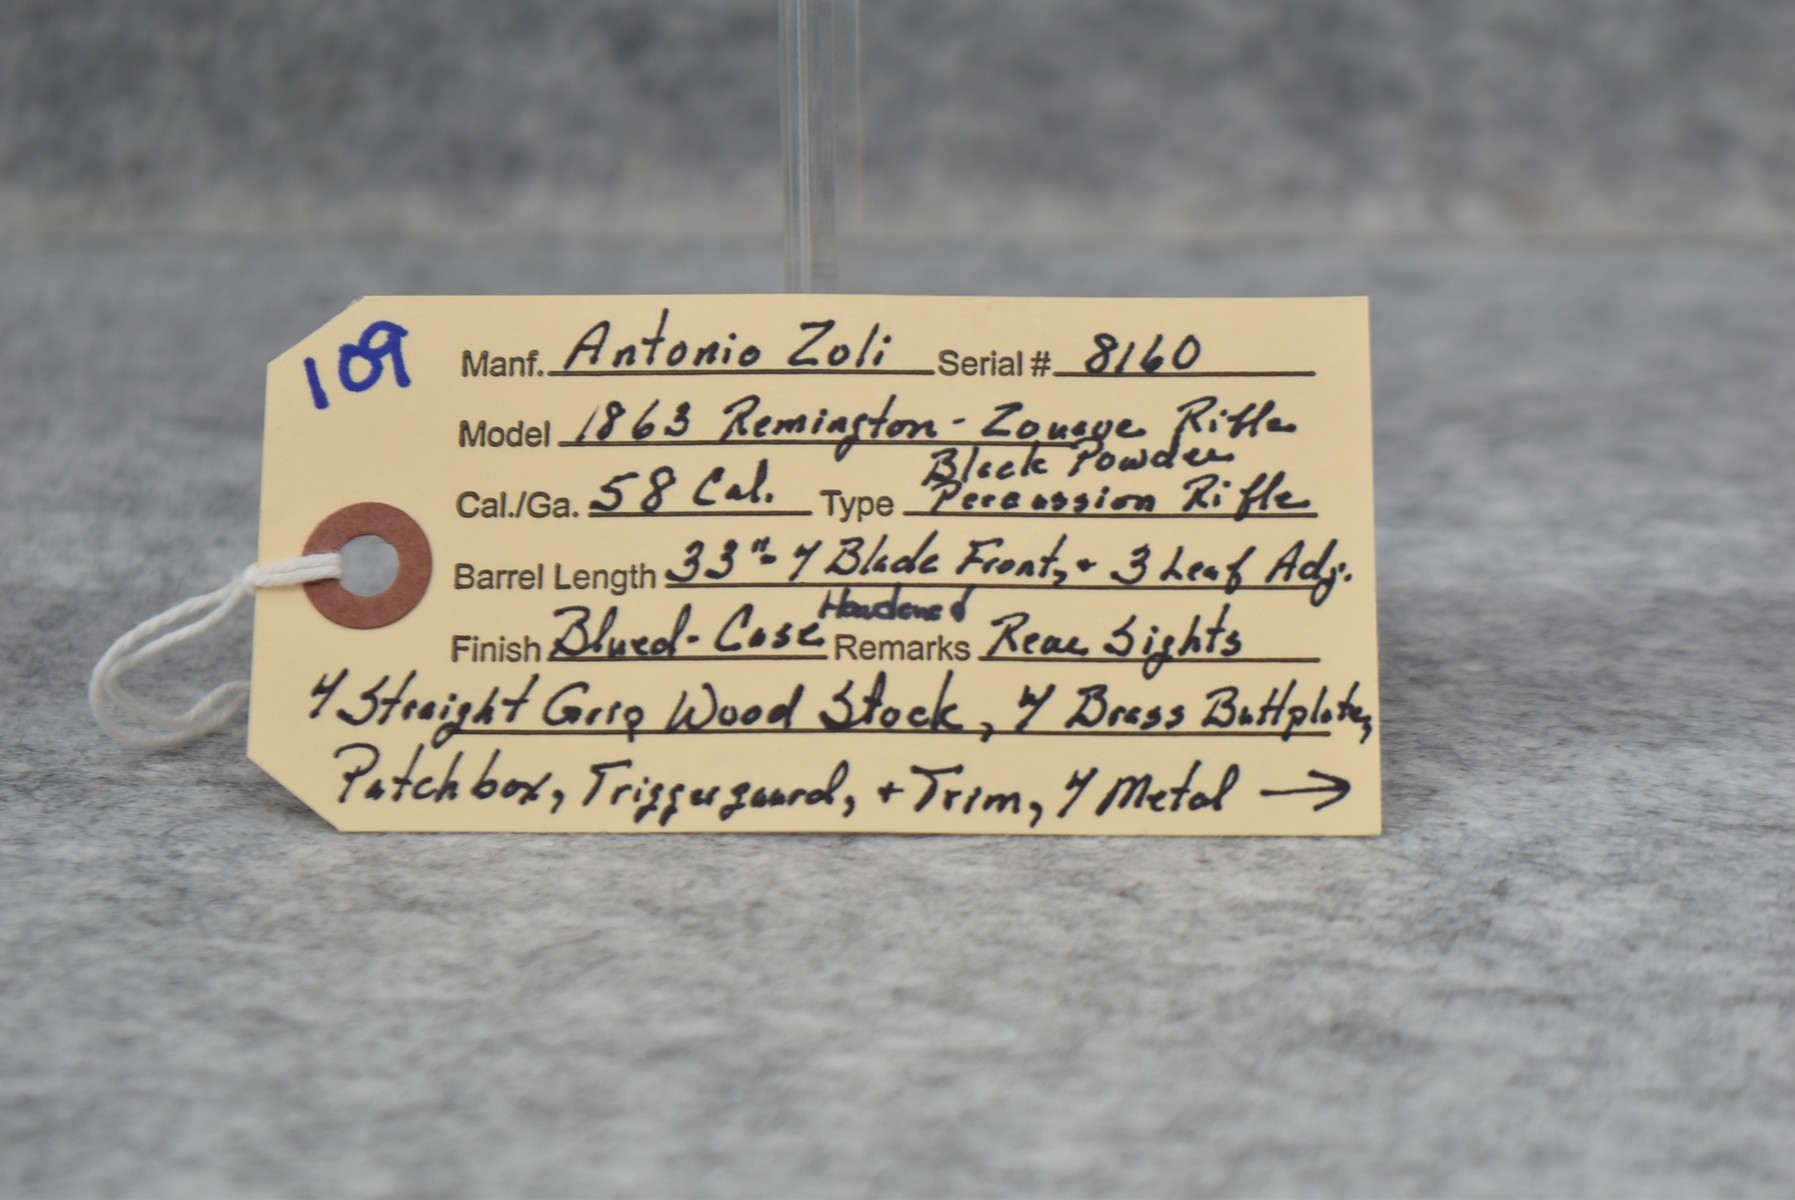 109
Manf. Antonio Zoli Serial # 8160
Model 1863 Remington - Zouave Rifle
Black Powder
Cal./Ga. 58 Cal. Type Percussion Rifle
Barrel Length 33"- w/ Blade Front, + 3 Leaf Adj.
Hardened
Finish Blued - Case Remarks Rear Sights
w/ Straight Grip Wood Stock, w/ Brass Buttplate,
Patchbox, Triggerguard, + Trim, w/ Metal →